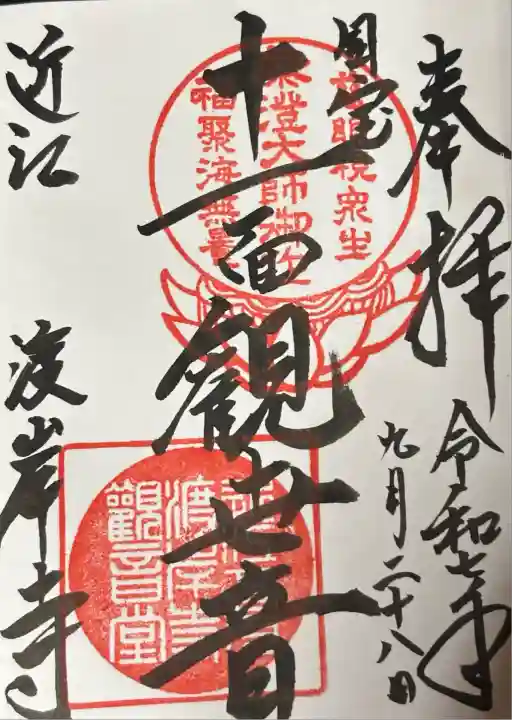 奉拝
令和七年
九月二十八日
国宝
十一面観世音
慈眼視衆生
最澄大師御作
福聚海無量
近江
渡岸寺
渡岸寺
觀音堂